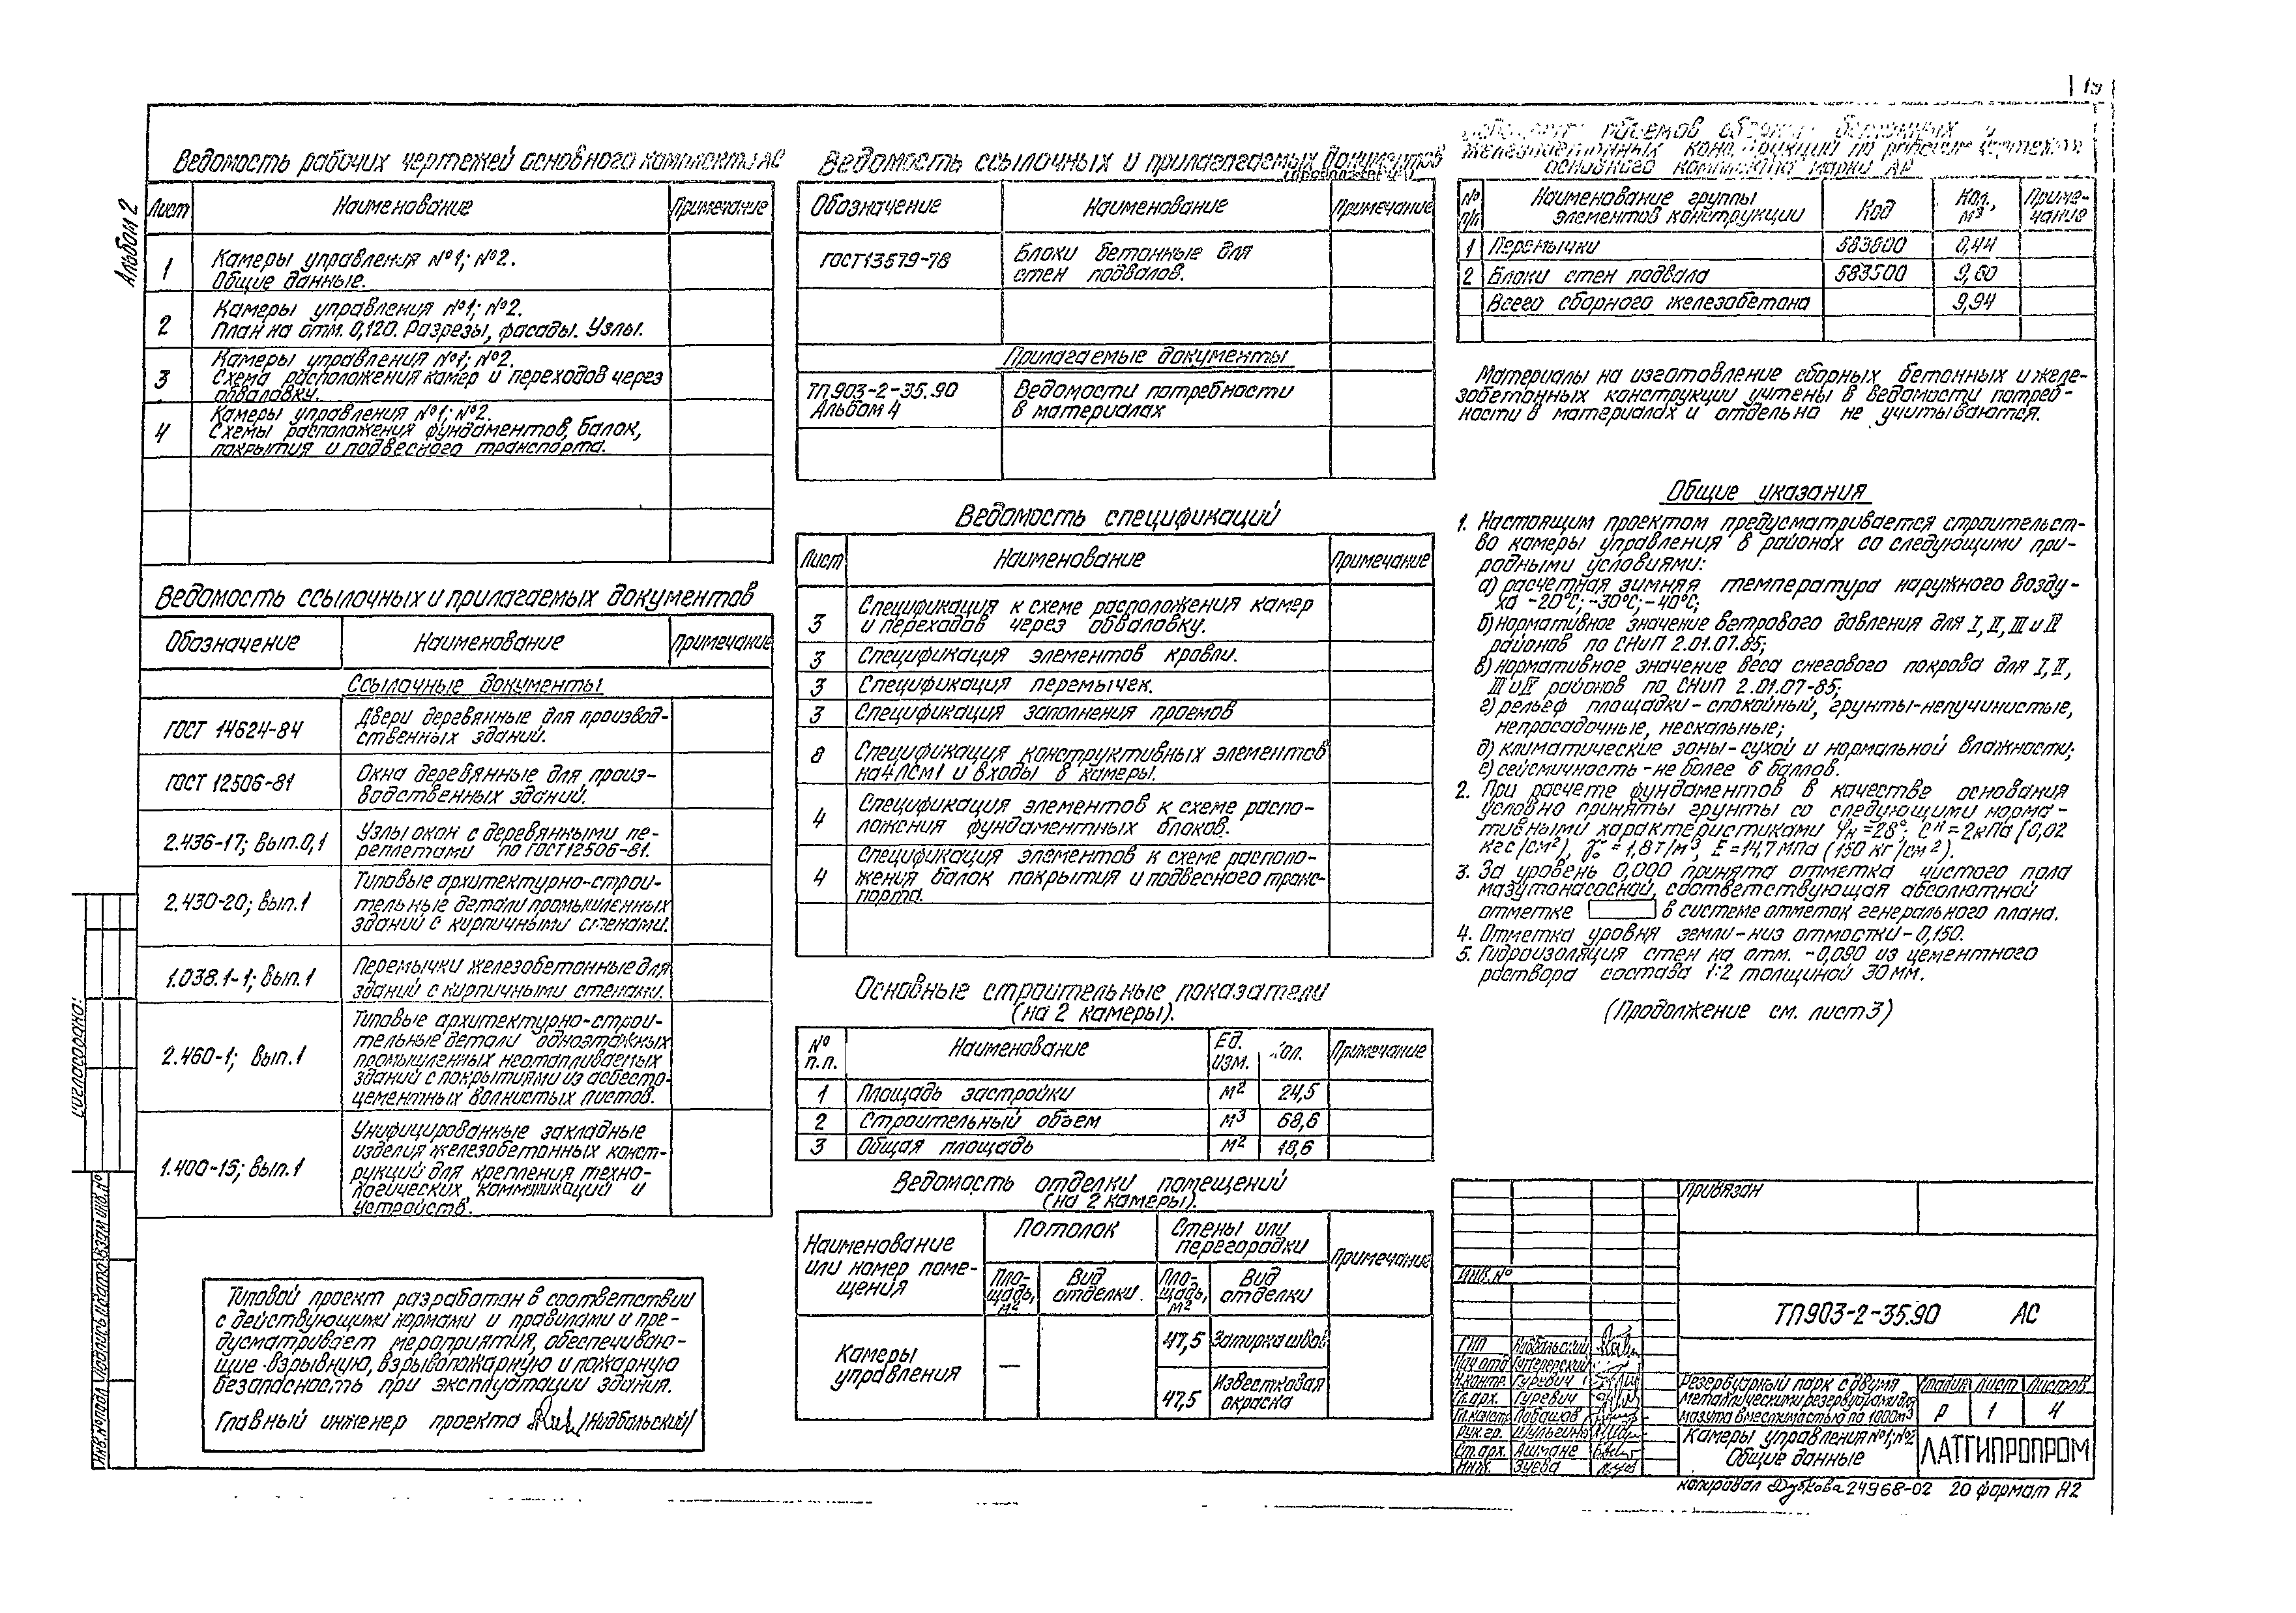 19
Альбом 2
Ведомость рабочих чертежей основного комплекта АС
Лист Наименование Примечание
1 Камеры управления №1; №2.
Общие данные.
2 Камеры управления №1; №2.
План на отм. 0,120. Разрезы, фасады. Узлы.
3 Камеры управления №1; №2.
Схема расположения камер и переходов через
обваловку.
4 Камеры управления №1; №2.
Схемы расположения фундаментов, балок,
покрытия и подвесного транспорта.
Ведомость ссылочных и прилагаемых документов
Обозначение Наименование Примечание
Ссылочные документы
ГОСТ 14624-84 Двери деревянные для производ-
ственных зданий.
ГОСТ 12506-81 Окна деревянные для произ-
водственных зданий.
2.436-17; Вып.0,1 Узлы окон с деревянными пе-
реплетами по ГОСТ 12506-81.
2.430-20; Вып.1 Типовые архитектурно-строи-
тельные детали промышленных
зданий с кирпичными стенами.
1.038.1-1; Вып.1 Перемычки железобетонные для
зданий с кирпичными стенами.
2.460-1; Вып.1 Типовые архитектурно-строи-
тельные детали одноэтажных
промышленных неотапливаемых
зданий с покрытиями из асбесто-
цементных волнистых листов.
1.400-15; Вып.1 Унифицированные закладные
изделия железобетонных конст-
рукций для крепления техно-
логических коммуникаций и
устройств.
Типовой проект разработан в соответствии
с действующими нормами и правилами и пре-
дусматривает мероприятия, обеспечиваю-
щие взрывную, взрывопожарную и пожарную
безопасность при эксплуатации здания.
Главный инженер проекта /Нидбальский/
Ведомость ссылочных и прилагаемых документов
(продолжение)
Обозначение Наименование Примечание
ГОСТ 13579-78 Блоки бетонные для
стен подвалов.
Прилагаемые документы
ТП 903-2-35.90 Ведомости потребности
Альбом 4 в материалах
Ведомость спецификаций
Лист Наименование Примечание
3 Спецификация к схеме расположения камер
и переходов через обваловку.
3 Спецификация элементов кровли.
3 Спецификация перемычек.
3 Спецификация заполнения проемов
8 Спецификация конструктивных элементов
на 4ЛСМ1 и входы в камеры.
4 Спецификация элементов к схеме распо-
ложения фундаментных блоков.
4 Спецификация элементов к схеме располо-
жения балок покрытия и подвесного транс-
порта.
Основные строительные показатели
(на 2 камеры).
№ п.п. Наименование Ед. изм. Кол. Примечание
1 Площадь застройки м² 24,5
2 Строительный объем м³ 68,6
3 Общая площадь м² 18,6
Ведомость отделки помещений
(на 2 камеры).
Наименование или номер поме-щения Потолок Стены или перегородки Примечание
Пло-щадь, м² Вид отделки. Пло-щадь, м² Вид отделки
Камеры управления — 47,5 Затирка швов
47,5 Известковая окраска
объемов сборных бетонных и
железобетонных конструкций по рабочим чертежам
основного комплекта марки АР
№ п/п Наименование группы элементов конструкции Код Кол., м³ Приме-чание
1 Перемычки 583800 0,44
2 Блоки стен подвала 583500 9,60
Всего сборного железобетона 9,94
Материалы на изготовление сборных бетонных и желе-
зобетонных конструкции учтены в ведомости потреб-
ности в материалах и отдельно не учитываются.
Общие указания
1. Настоящим проектом предусматривается строительст-
во камеры управления в районах со следующими при-
родными условиями:
а) расчетная зимняя температура наружного возду-
ха -20°С; -30°С; -40°С;
б) нормативное значение ветрового давления для I, II, III и IV
районов по СНиП 2.01.07.85;
в) нормативное значение веса снегового покрова для I, II,
III и IV районов по СНиП 2.01.07-85;
г) рельеф площадки - спокойный, грунты-непучинистые,
непросадочные, нескальные;
д) климатические зоны - сухой и нормальной влажности;
е) сейсмичность - не более 6 баллов.
2. При расчете фундаментов в качестве основания
условно приняты грунты со следующими норма-
тивными характеристиками φн = 28°; Cн = 2кПа (0,02
кгс/см²), γо = 1,8 т/м³, Е = 14,7 мпа (150 кг/см²).
3. За уровень 0,000 принята отметка чистого пола
мазутонасосной, соответствующая абсолютной
отметке в системе отметок генерального плана.
4. Отметка уровня земли - низ отмостки - 0,150.
5. Гидроизоляция стен на отм. -0,090 из цементного
раствора состава 1:2 толщиной 30 мм.
(Продолжение см. лист 3)
Привязан
Инв. №
ТП 903-2-35.90 АС
ГИП Нидбальский
Нач.отд
Н.контр. Гуревич
Гл.арх. Гуревич
Гл.констр. Лобашов
Рук.гр. Шульгина
Ст.арх. Ашмане
Инж. Зуева
Резервуарный парк с двумя
металлическими резервуарами для
мазута вместимостью по 1000м³
Стадия Лист Листов
Р 1 4
Камеры управления №1; №2
Общие данные
ЛАТГИПРОПРОМ
Копировал Дубкова 24968-02 20 формат А2
Согласовано:
Инв.№ подл. Подпись и дата Взам.инв.№